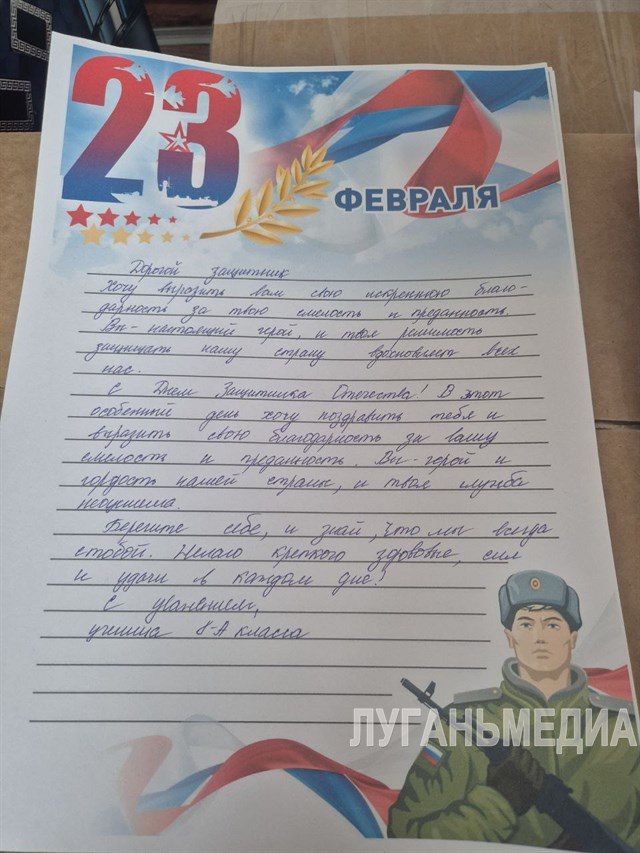 23
ФЕВРАЛЯ
Дорогой защитник
Хочу выразить вам свою искреннюю благо-
дарность за твою смелость и преданность.
Вы - настоящий герой, и твоя решимость
защищать нашу страну вдохновляет всех
нас.
С Днем Защитника Отечества! В этот
особенный день хочу поздравить тебя и
выразить свою благодарность за вашу
смелость и преданность. Вы - герой и
гордость нашей страны, и твоя служба
неоценима.
Берегите себе, и знай, что мы всегда
стобой. Желаю крепкого здоровье, сил
и удачи в каждом дне!
С уважением,
ученица 8-А класса
ЛУГАНЬМЕДИА